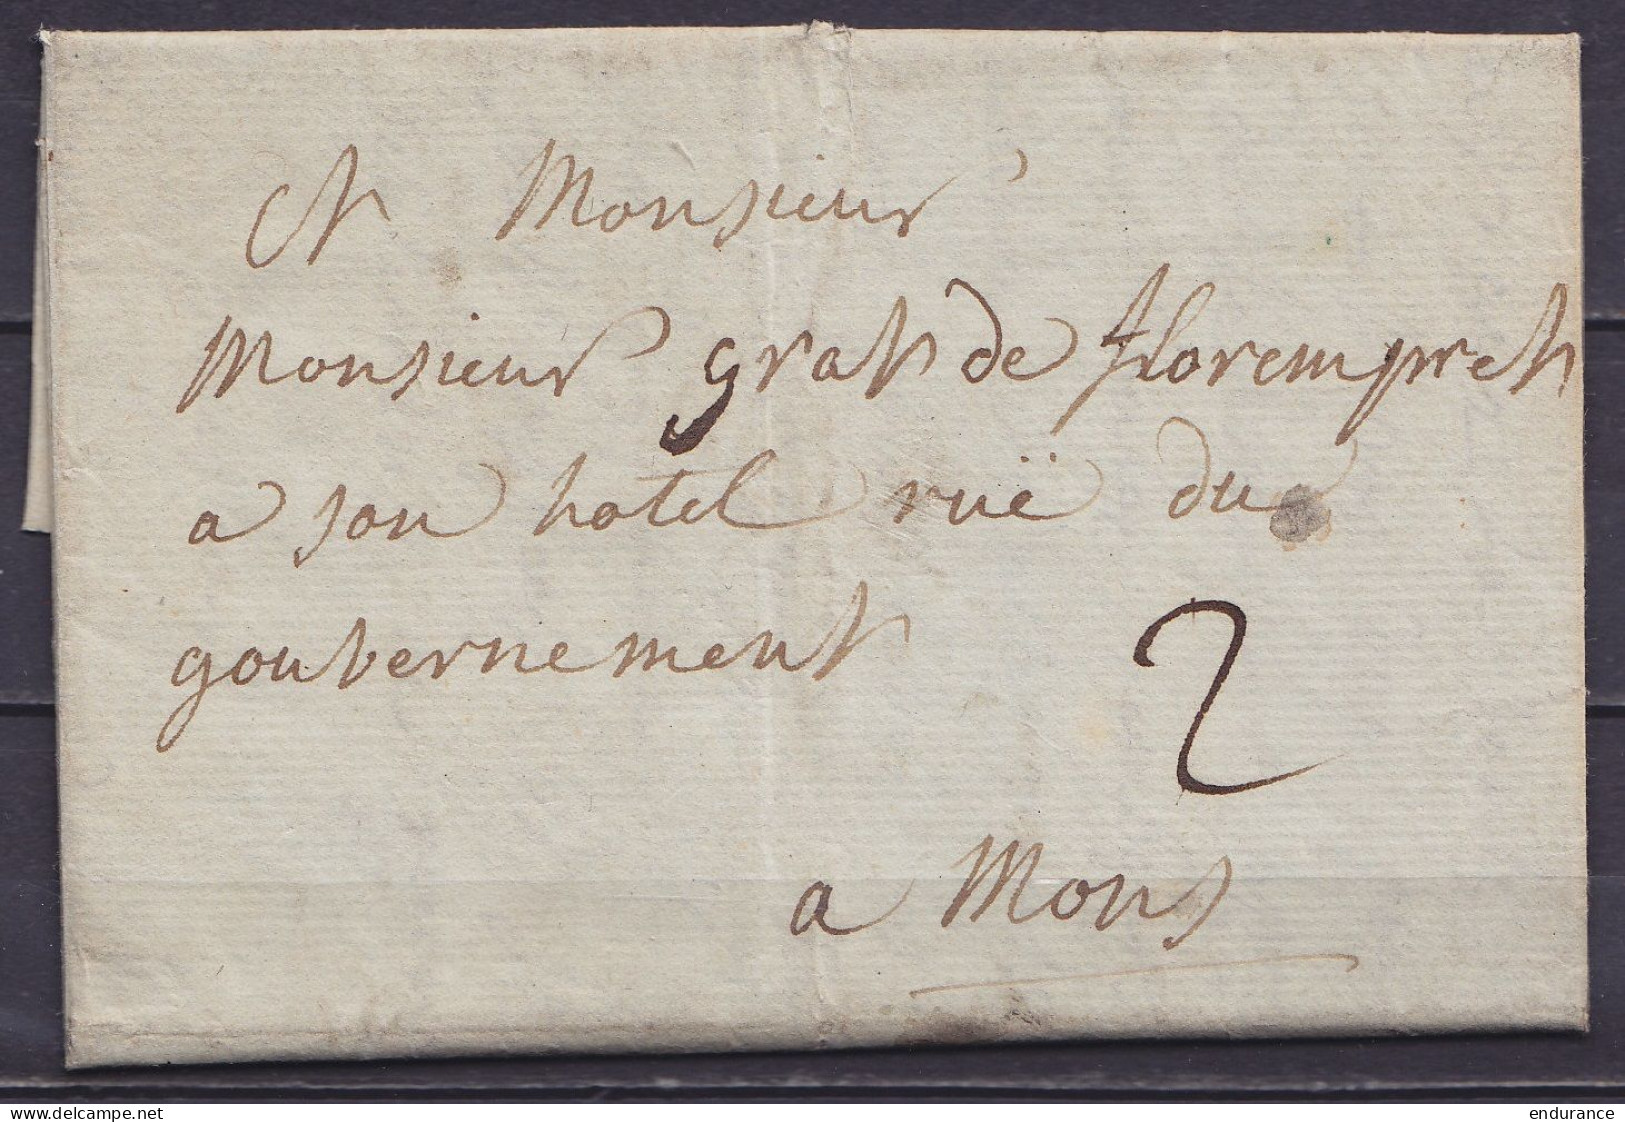 A Monsieur
Monsieur grat de florempret
a son hotel ruë du
gouvernement
2
a Mons
www.delcampe.net
endurance